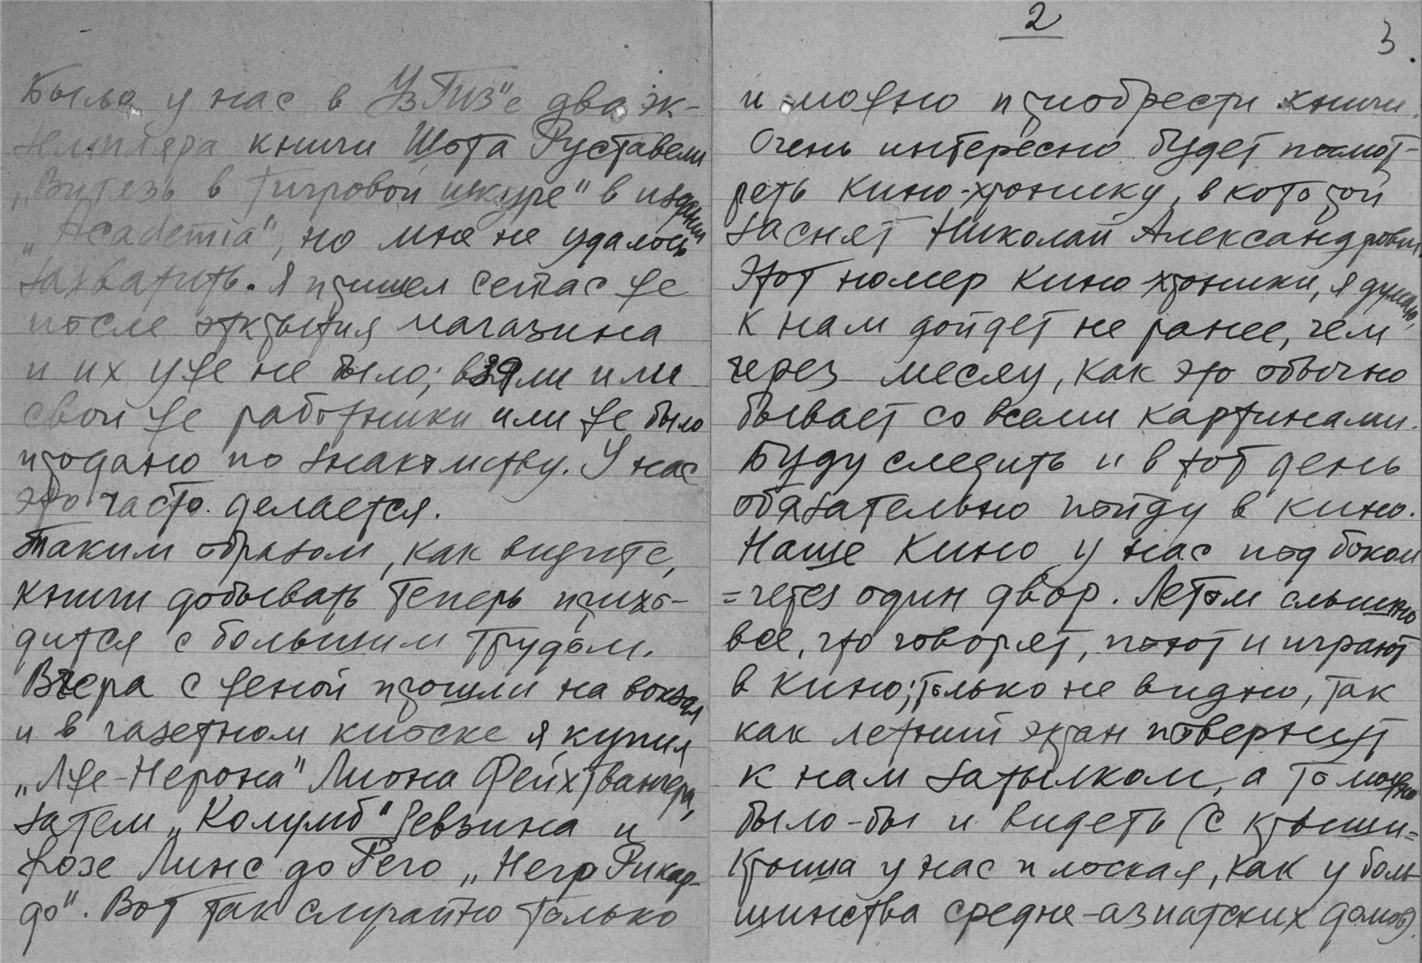 Было у нас в УзГиз"е два эк-
земпляра книги Шота Руставели
„Витязь в тигровой шкуре" в издании
„Academia", но мне не удалось
захватить. Я пришел сейчас же
после открытия магазина
и их уже не было; взяли или
свои же работники или же было
продано по знакомству. У нас
это часто делается.
Таким образом, как видите,
книги добывать теперь прихо-
дится с большим трудом.
Вчера с женой прошли на вокзал
и в газетном киоске я купил
„Лже-Нерона" Лиона Фейхтвангера,
затем „Колумб" Ревзина и
Жозе Линс до Рего „Негр Рикар-
до". Вот так случайно только
2
3.
и можно приобрести книги.
Очень интересно будет посмот-
реть кино-хронику, в которой
заснят Николай Александрович.
Этот номер кино хроники, я думаю,
к нам дойдет не ранее, чем
через месяц, как это обычно
бывает со всеми картинами.
Буду следить и в тот день
обязательно пойду в кино.
Наше кино у нас под боком
=через один двор. Летом слышно
все, что говорят, поют и играют
в кино; только не видно, так
как летний экран повернут
к нам затылком, а то можно
было-бы и видеть (с крыши=
крыша у нас плоская, как у боль-
шинства средне-азиатских домов).